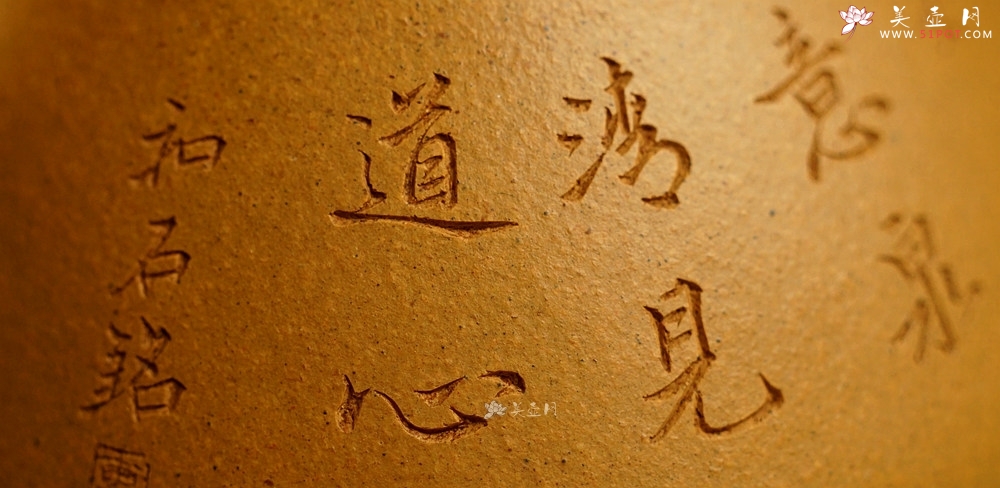 美壶网
WWW.51POT.COM
意泉
清見
道心
石銘
美壶网